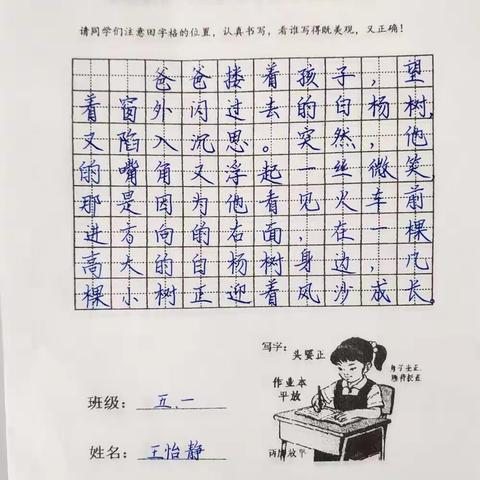 请同学们注意田字格的位置，认真书写，看谁写得既美观，又正确！
爸爸搂着孩子，望
着窗外闪过去的白杨树，
又陷入沉思。突然，他
的嘴角又浮起一丝微笑，
那是因为他看见火车前
进方向的右面，在一棵
高大的白杨树身边，几
棵小树正迎着风沙成长。
写字：头要正
身子坐正
作业本
平放
两脚放平
班级：五.一
姓名：王怡静